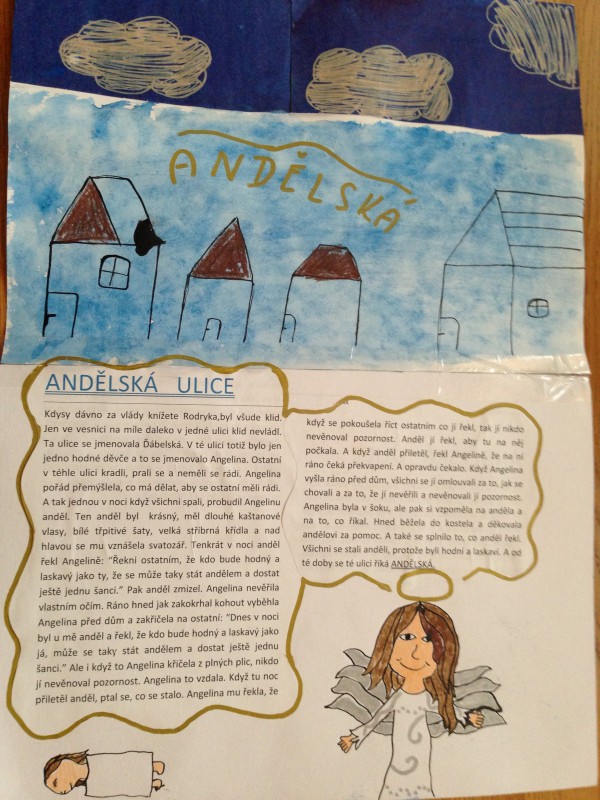 ANDĚLSKÁ
ANDĚLSKÁ ULICE
Kdysy dávno za vlády knížete Rodryka,byl všude klid.
Jen ve vesnici na míle daleko v jedné ulici klid nevládl.
Ta ulice se jmenovala Ďábelská. V té ulici totiž bylo jen
jedno hodné děvče a to se jmenovalo Angelina. Ostatní
v téhle ulici kradli, prali se a neměli se rádi. Angelina
pořád přemýšlela, co má dělat, aby se ostatní měli rádi.
A tak jednou v noci když všichni spali, probudil Angelinu
anděl. Ten anděl byl krásný, měl dlouhé kaštanové
vlasy, bílé třpitivé šaty, velká střibrná křídla a nad
hlavou se mu vznášela svatozář. Tenkrát v noci anděl
řekl Angelině: "Řekni ostatním, že kdo bude hodný a
laskavý jako ty, že se může taky stát andělem a dostat
ještě jednu šanci." Pak anděl zmizel. Angelina nevěřila
vlastním očím. Ráno hned jak zakokrhal kohout vyběhla
Angelina před dům a zakřičela na ostatní: "Dnes v noci
byl u mě anděl a řekl, že kdo bude hodný a laskavý jako
já, může se taky stát andělem a dostat ještě jednu
šanci." Ale i když to Angelina křičela z plných plic, nikdo
jí nevěnoval pozornost. Angelina to vzdala. Když tu noc
přiletěl anděl, ptal se, co se stalo. Angelina mu řekla, že
když se pokoušela říct ostatním co jí řekl, tak jí nikdo
nevěnoval pozornost. Anděl jí řekl, aby tu na něj
počkala. A když anděl přiletěl, řekl Angelině, že na ní
ráno čeká překvapení. A opravdu čekalo. Když Angelina
vyšla ráno před dům, všichni se jí omlouvali za to, jak se
chovali a za to, že jí nevěřili a nevěnovali jí pozornost.
Angelina byla v šoku, ale pak si vzpoměla na anděla a
na to, co říkal. Hned běžela do kostela a děkovala
andělovi za pomoc. A také se splnilo to, co anděl řekl.
Všichni se stali anděli, protože byli hodní a laskaví. A od
té doby se té ulici říká ANDĚLSKÁ.